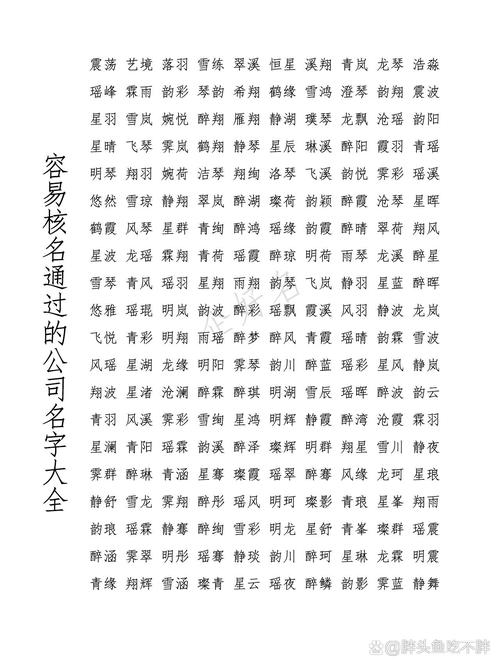 容易核名通过的公司名字大全
震荡 艺境 落羽 雪练 翠溪 恒星 溪翔 青岚 龙琴 浩淼
瑶峰 霖雨 韵彩 琴韵 希翔 鹤缘 雪鸿 澄琴 韵翔 震波
星羽 雪岚 婉悦 醉翔 雁翔 静湖 璞琴 龙飘 沧瑶 韵阳
星晴 飞琴 霁岚 鹤翔 静琴 星辰 琳溪 醉阳 霞羽 青瑶
明琴 翔羽 婉荷 洁琴 翔绚 洛琴 飞溪 韵悦 霁彩 瑶溪
悠然 雪琼 静翔 翠岚 醉湖 璨荷 韵颖 醉霞 沧琴 星晖
鹤霞 风琴 星群 青绚 醉鸿 瑶缘 韵霞 醉晴 翠荷 翔风
星波 龙瑶 霖翔 青荷 瑶霞 醉琼 明荷 雨琴 龙溪 醉星
雪琴 青风 瑶羽 星翔 雨翔 韵琴 飞岚 静羽 星蓝 醉晖
悠雅 瑶琨 明岚 韵波 醉彩 瑶飘 霞溪 风羽 静波 龙岚
飞悦 青彩 明翔 雨瑶 醉梦 醉风 青霞 瑶晴 韵霖 雪波
风瑶 星湖 龙缘 明阳 霁琴 韵川 醉蓝 瑶彩 星风 静岚
翔波 星渚 沧澜 醉霖 醉琪 明湖 雪辰 瑶晖 醉波 韵云
青羽 风溪 霁彩 雪绚 星鸿 明辉 静霞 醉湾 沧霞 霖羽
星澜 青阳 瑶霖 韵溪 醉泽 璨辉 明群 翔星 雪川 静夜
霁群 醉琳 青涵 星骞 璨霞 瑶翠 醉骞 风缘 龙珂 星琅
静舒 雪龙 霁翔 醉彤 瑶风 明珂 璨影 青琅 星峯 翔雨
韵琅 瑶霖 静骞 醉绚 雪彩 明龙 星舒 青峯 璨群 瑶震
醉涵 霁翠 明彤 瑶骞 静琰 韵川 醉珂 星琳 龙霖 明震
青缘 翔辉 雪涵 璨青 星云 瑶夜 醉鳞 韵影 霁蓝 静舞
企好名
胖头鱼吃不胖